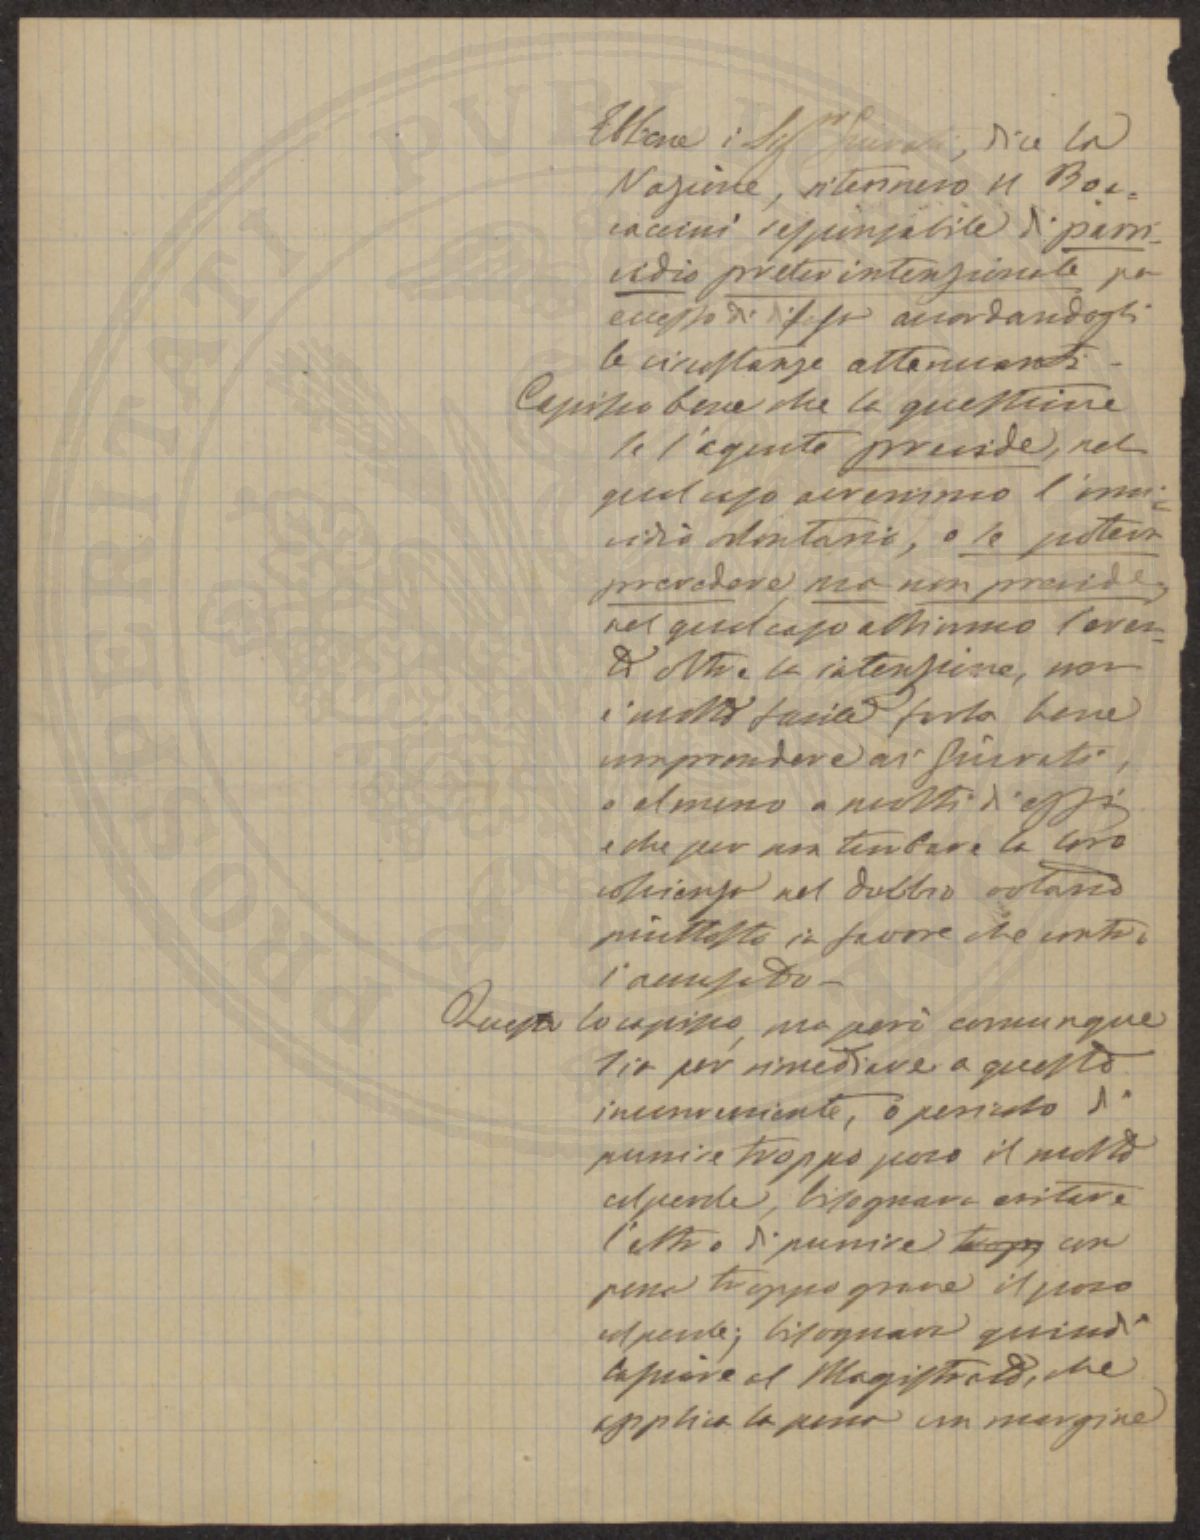 Ebbene i Sigri Giurati, dice la
Nazione, ritennero il Boc=
caccini responsabile di parri-
cidio preterintenzionale per
eccesso di difesa accordandogli
le circostanze attenuanti -
Capisco bene che la questione
se l'agente previde, nel
qual caso avremmo l'omi=
cidio volontario, o se poteva
prevedere, ma non previde,
nel qual caso abbiamo l'even=
to oltre la intenzione, non
è molto facile farla bene
comprendere ai Giurati,
o almeno a molti di essi
e che per non turbare la loro
coscienza nel dubbio votano
piuttosto in favore che contro
l'accusato -
Questo lo capisco, ma però comunque
sia per rimediare a questo
inconveniente, o pericolo di
punire troppo poco il molto
colpevole, bisognava evitare
l'altro di punire con
pena troppo grave il poco
colpevole; bisognava quindi
lasciare al Magistrato, che
applica la pena un margine
PROSPERITATI PVBLIC